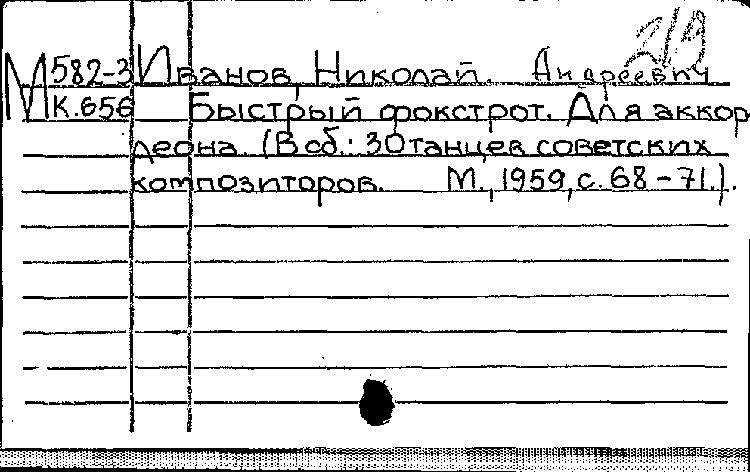 219
М 582-3 Иванов, Николай. Андреевич
К.656 Быстрый фокстрот. Для аккор
деона. (В сб.: 30 танцев советских
композиторов. М., 1959, с. 68-71.).